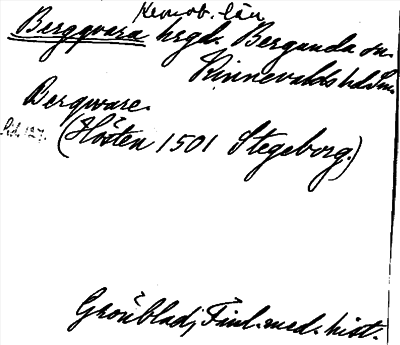 Kronob. län
Bergqvara hrgd. Bergunda sn.
Kinnevalds hd. Sm.
Bergware.
(Hösten 1501 Stegeborg.)
Grönblad, Finl. med. hist.